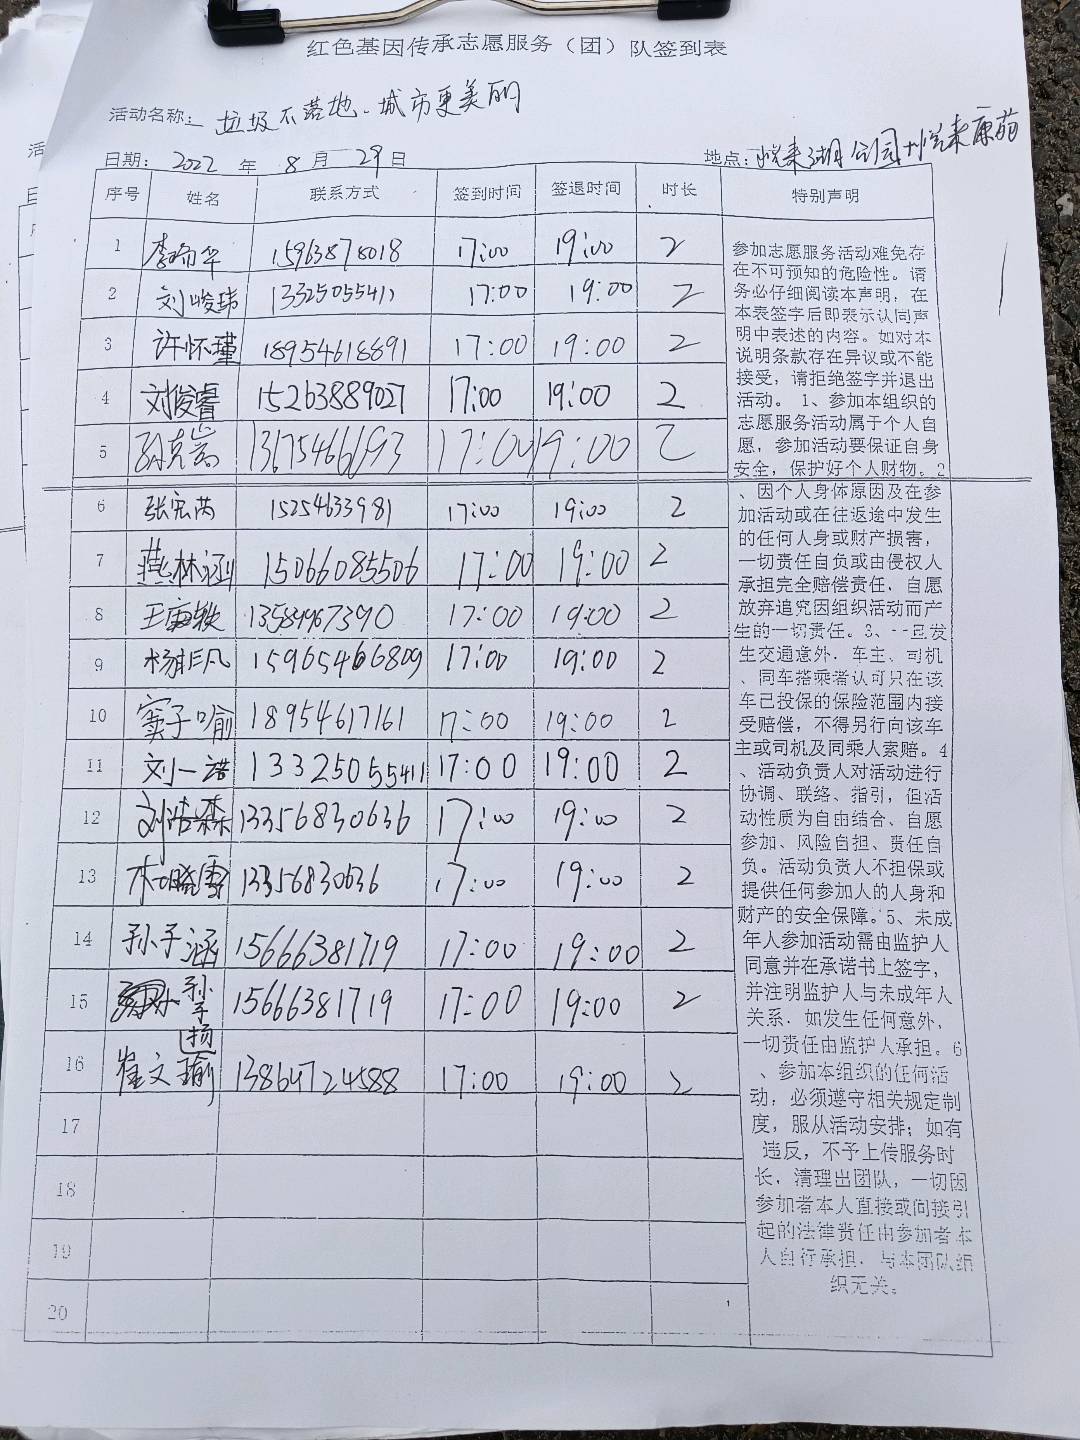 红色基因传承志愿服务（团）队签到表
活动名称：垃圾不落地、城市更美丽
日期：2022 年 8 月 29 日 地点：悦来湖公园 悦来康苑
序号 姓名 联系方式 签到时间 签退时间 时长 特别声明
1 15963878018 17:00 19:00 2
2 刘峻玮 13325055411 17:00 19:00 2
3 许怀瑾 18954618891 17:00 19:00 2
4 刘俊睿 15263889027 17:00 19:00 2
5 孙克岩 13675466193 17:00 19:00 2
6 15254633981 17:00 19:00 2
7 燕林涵 15066085506 17:00 19:00 2
8 17:00 19:00 2
9 杨非凡 15965466809 17:00 19:00 2
10 窦子喻 18954617161 17:00 19:00 2
11 刘一诺 13325055411 17:00 19:00 2
12 刘浩森 13356830636 17:00 19:00 2
13 晓雪 13356830636 17:00 19:00 2
14 孙子涵 15666381719 17:00 19:00 2
15 孙子扬 15666381719 17:00 19:00 2
16 崔文瑜 13864724588 17:00 19:00 2
17
18
19
20
参加志愿服务活动难免存
在不可预知的危险性。请
务必仔细阅读本声明，在
本表签字后即表示认同声
明中表述的内容。如对本
说明条款存在异议或不能
接受，请拒绝签字并退出
活动。 1、参加本组织的
志愿服务活动属于个人自
愿，参加活动要保证自身
安全，保护好个人财物。2
、因个人身体原因及在参
加活动或在往返途中发生
的任何人身或财产损害，
一切责任自负或由侵权人
承担完全赔偿责任．自愿
放弃追究因组织活动而产
生的一切责任。3、一旦发
生交通意外．车主、司机
、同车搭乘者认可只在该
车已投保的保险范围内接
受赔偿，不得另行向该车
主或司机及同乘人索赔。4
、活动负责人对活动进行
协调、联络、指引，但活
动性质为自由结合、自愿
参加、风险自担、责任自
负。活动负责人不担保或
提供任何参加人的人身和
财产的安全保障。5、未成
年人参加活动需由监护人
同意并在承诺书上签字，
并注明监护人与未成年人
关系．如发生任何意外，
一切责任由监护人承担。6
、参加本组织的任何活
动，必须遵守相关规定制
度，服从活动安排；如有
违反，不予上传服务时
长，清理出团队，一切因
参加者本人直接或间接引
起的法律责任由参加者本
人自行承担．与本团队组
织无关。